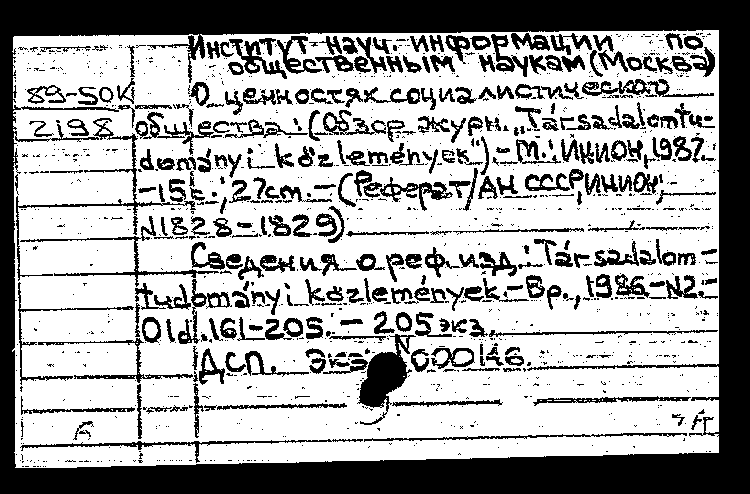 Институт науч. информации по
общественным наукам (Москва)
89-50К О ценностях социалистического
2198 общества : (Обзор журн. „Társadalomtu-
dományi közlemények"). - М.: ИНИОН, 1987.
-15с.; 27cm. - (Реферат/АН СССР, ИНИОН;
N1828-1829).
Сведения о реф. изд.: Társadalom-
tudományi közlemények. - Bp., 1986. - N2. -
Old. 161-205. - 205 экз.
ДСП. Экз N 000146.